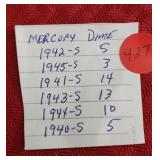 MERCURY DIME
1942-S 5
1945-S 3
1941-S 14
1943-S 13
1944-S 10
1940-S 5
427